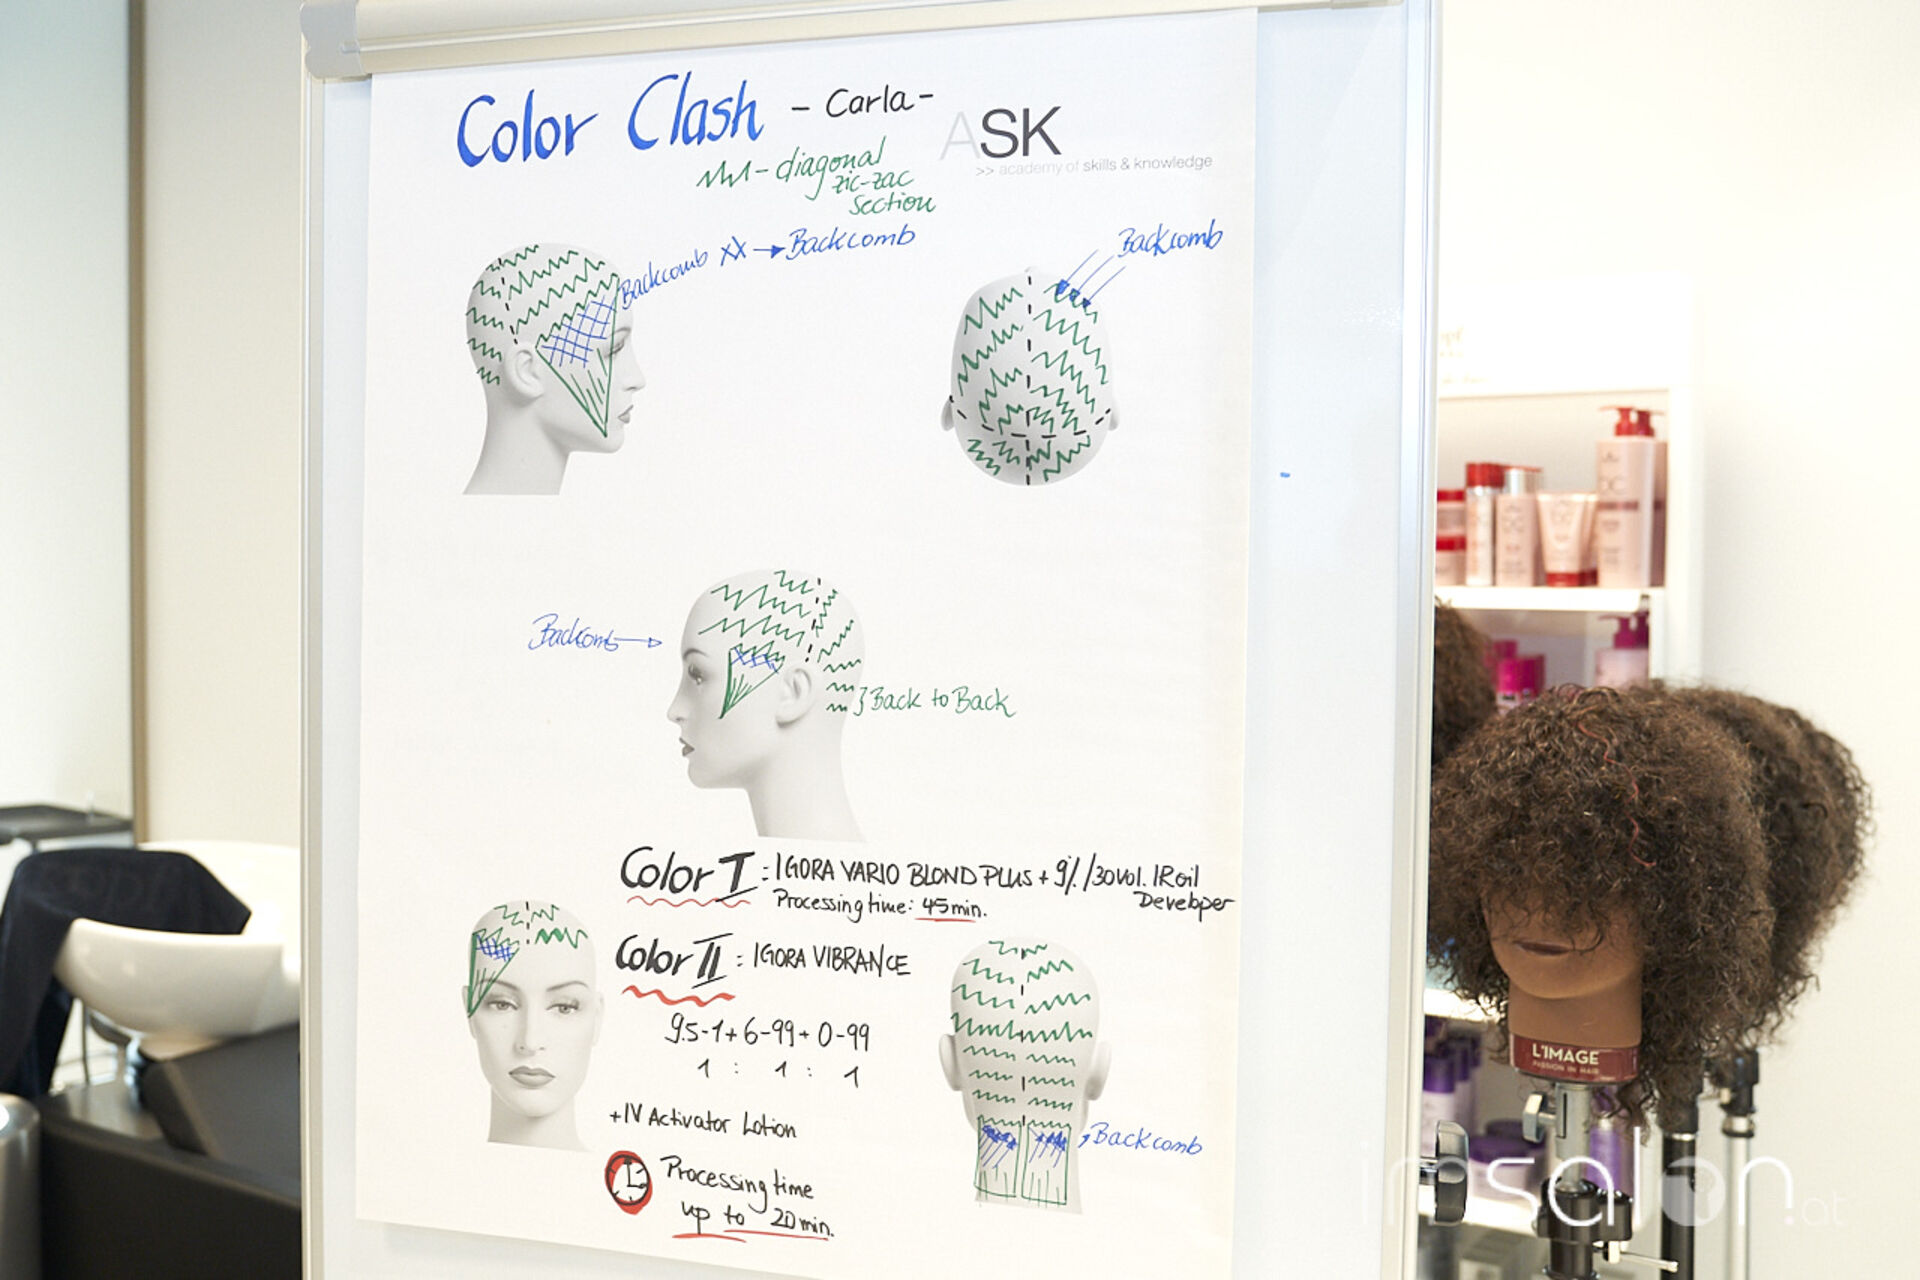 Color Clash - Carla -
ASK
>> academy of skills & knowledge
- diagonal
zic-zac
section
Backcomb XX → Backcomb
Backcomb
Backcomb →
} Back to Back
Color I : IGORA VARIO BLOND PLUS + 9% / 30 Vol. IRoil
Developer
Processing time: 45 min.
Color II : IGORA VIBRANCE
9.5-1 + 6-99 + 0-99
1 : 1 : 1
+ IV Activator Lotion
Processing time
up to 20 min.
Backcomb
L'IMAGE
PASSION IN HAIR
imsalon.at